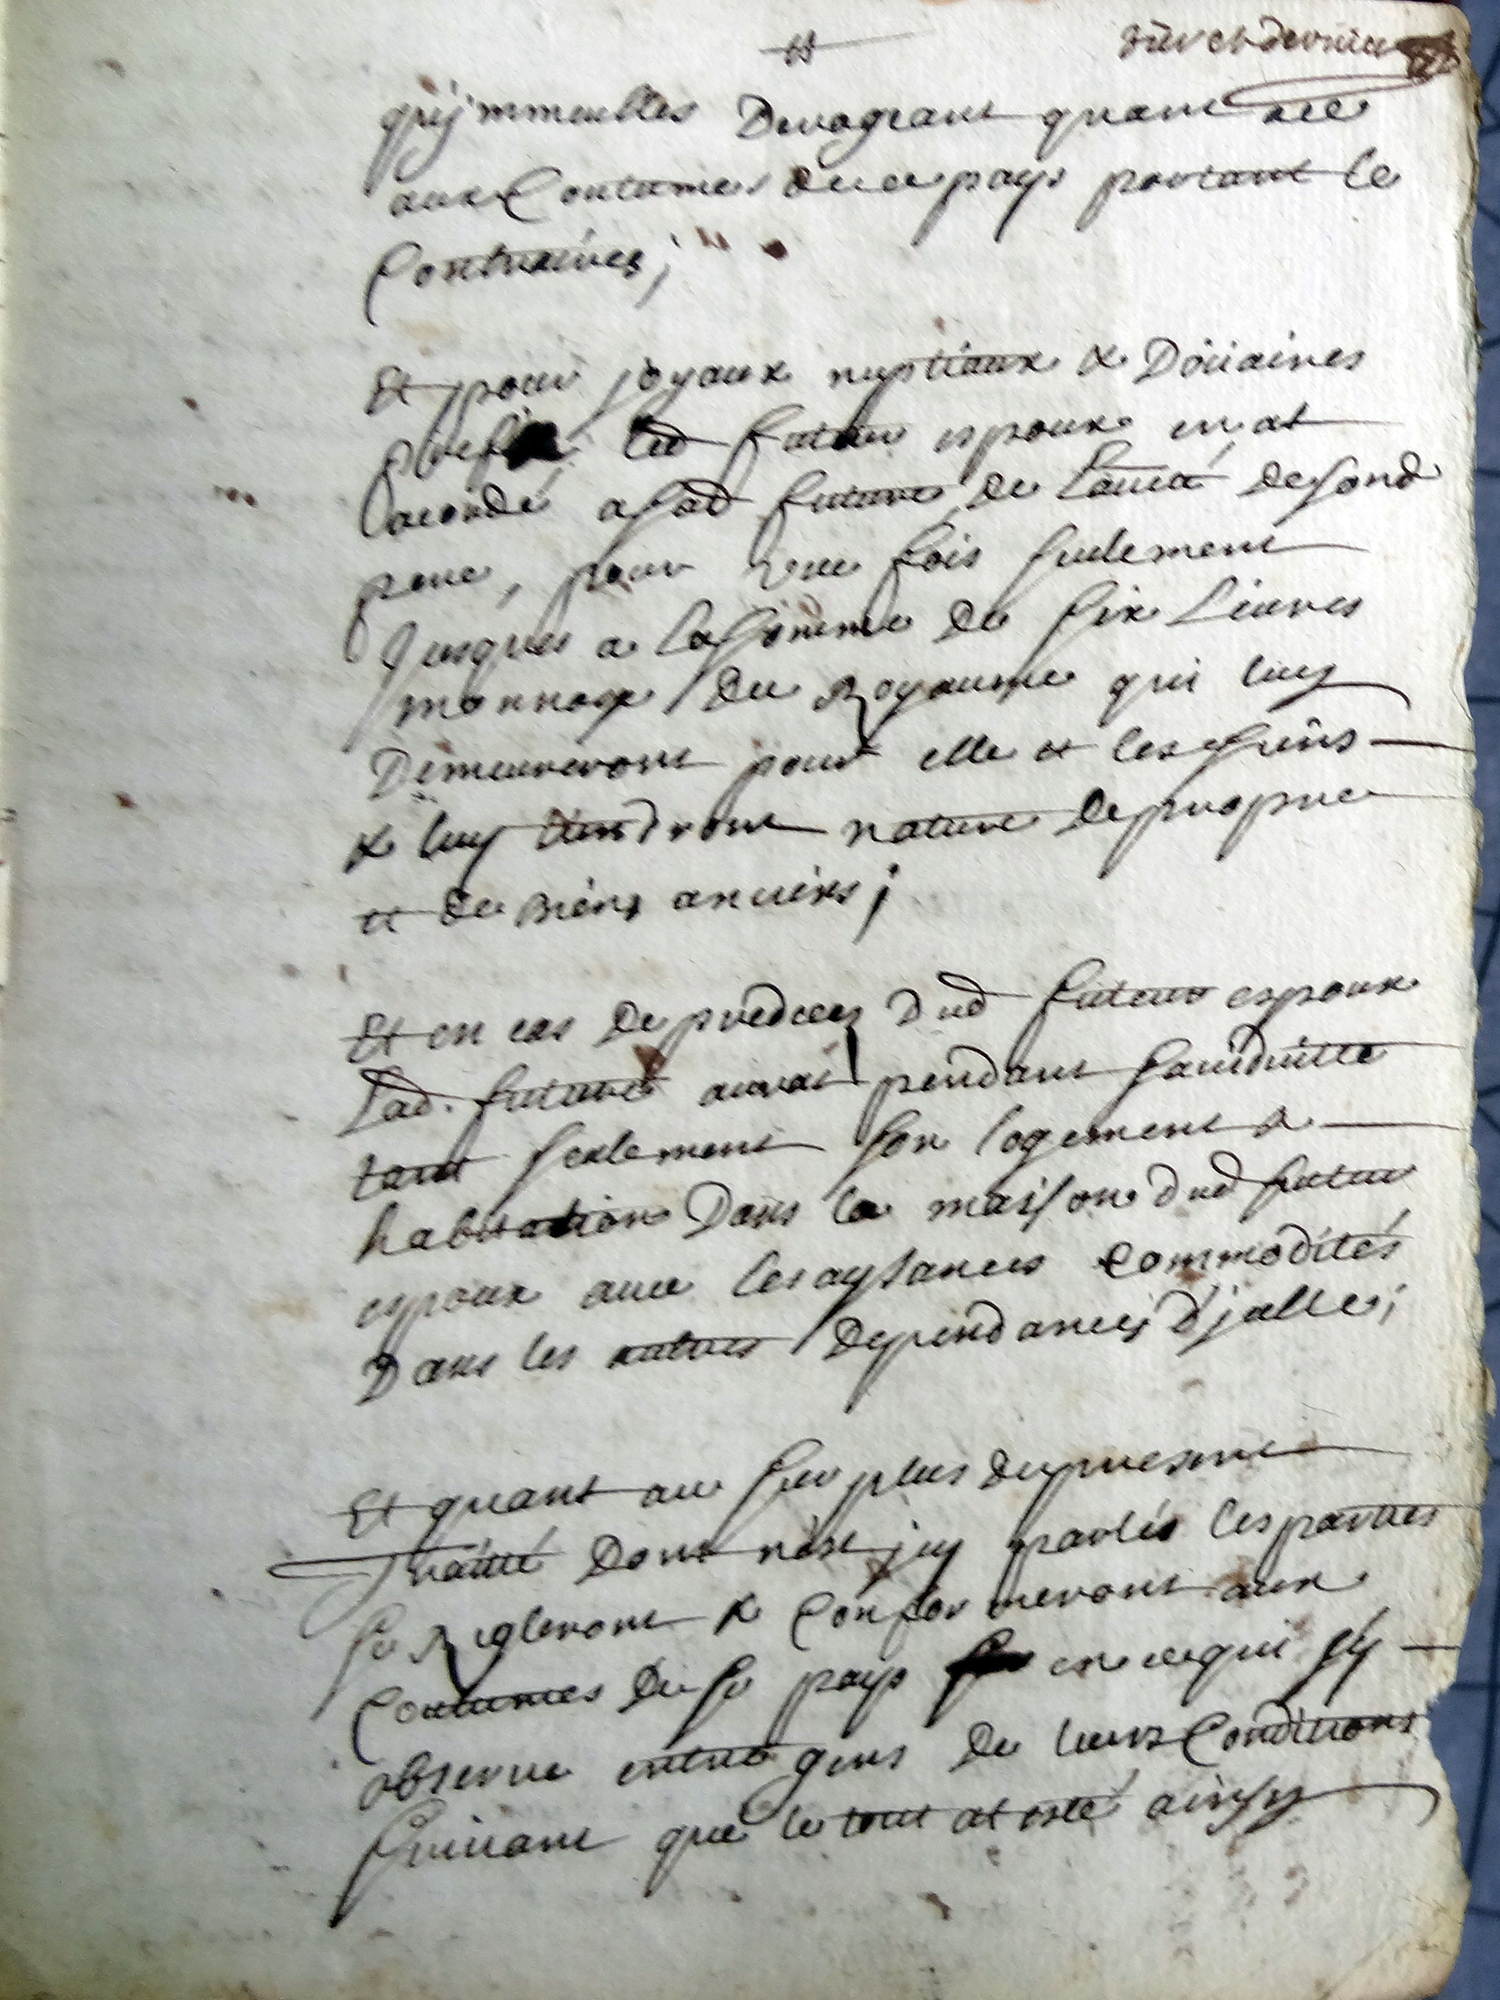 qu'immeubles Derogeant quant a ce
aux Coutumes de ce pays portant le
Contraires;
Et pour joyaux nuptiaux & Doüaires
prefix led futur espoux en at
acordé a lad future de Lauct
pour Une fois seulement
Jusques a la somme de six Liures
monnoye du Royaume qui luy
Demeureront pour elle et les siens
& luy tiendront nature de propre
et de Biens anciens;
Et en cas de predeces dud futeur espoux
Lad. future aurat pendant sa uiduitté
tant seulement son logement &
habitation Dans la maison dud futur
espoux auec les aysances Commodités
Dans les autres Dependances D'jcelle;
Et quant au surplus du present
Traitté Dont n'est jcy parlés les parties
se Regleront & Conformeront aux
Coutumes de se pays en ce qui s'y
obserue entre gens de leurs Conditions
suiuant que le tout at esté ainsy